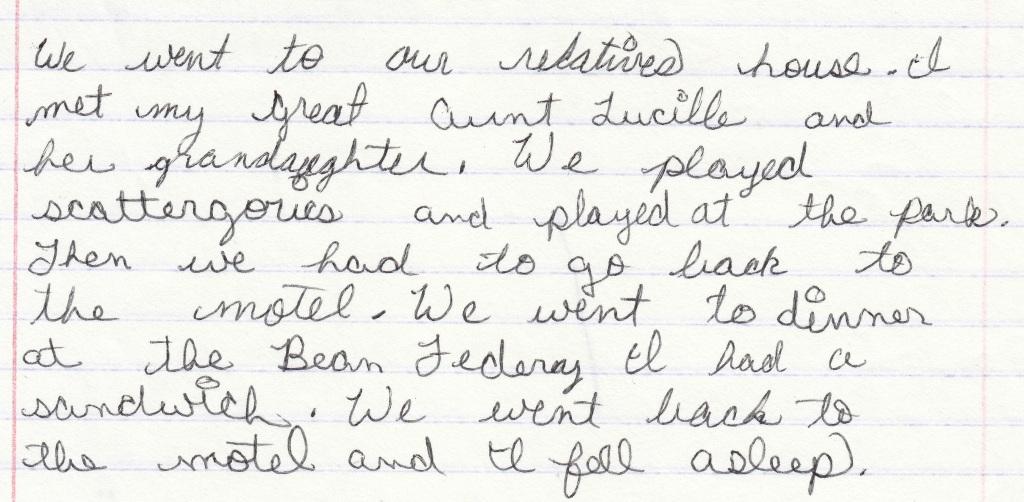 We went to our relatives house. I
met my great Aunt Lucille and
her grandaughter. We played
scattergories and played at the park.
Then we had to go back to
the motel. We went to dinner
at the Bean Federay I had a
sandwich. We went back to
the motel and I fell asleep.